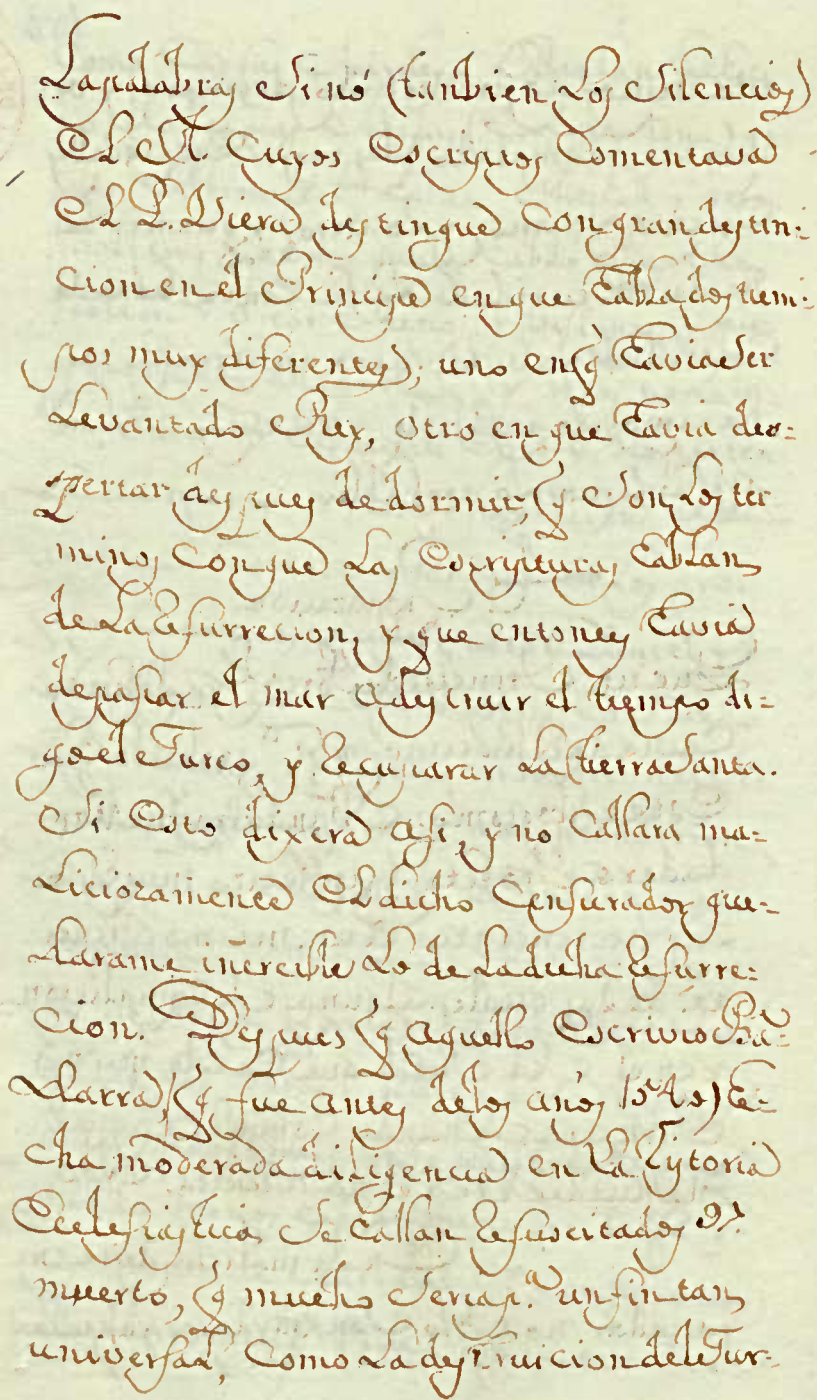 Las palabras Sinó (tanbien Los Silencios)
El A. Cuyos Escritos Comentava
El P. Viera destingue Con gran destin-
cion en el Principe en que habla dos tiem-
pos muy diferentes, uno en q̃ havia Ser
Levantado Rey, otro en que havia des-
pertar despues de dormir, q̃ Son Los ter
minos Con que Las Escrypturas hablan
de La Resurrecion, y que entonces havia
de passar el mar a destruir el tiempo di-
go el Turco, y Recuparar La tierra Santa.
Si Esto dixera asi, y no Callara ma-
Liciozamente El dicho Censurador, que-
darame increible Lo de La dicha Resurre-
cion. Despues q̃ aquello Escrivio Ba-
darra, (q̃ fue antes de los anos 1540) he-
cha moderada diligencia en La historia
Eclesiastica Se hallan Resuscitados 97
muerto, q̃ mucho Seria p.ª un fin tan
universal, Como La destruicion del Tur-